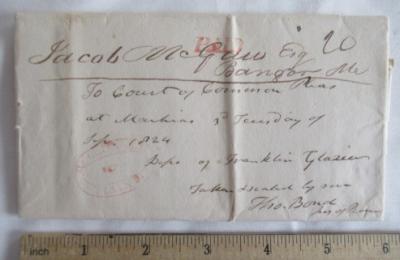 PAID
20
Jacob McGaw Esq
Bangor Me
To Court of Common Pleas
at Machias 3d Tuesday of
Sept. 1824
Depo of Franklin Glazier
Taken & sealed by me
Tho. Bond
Jus of Peace
inch 1 2 3 4 5 6